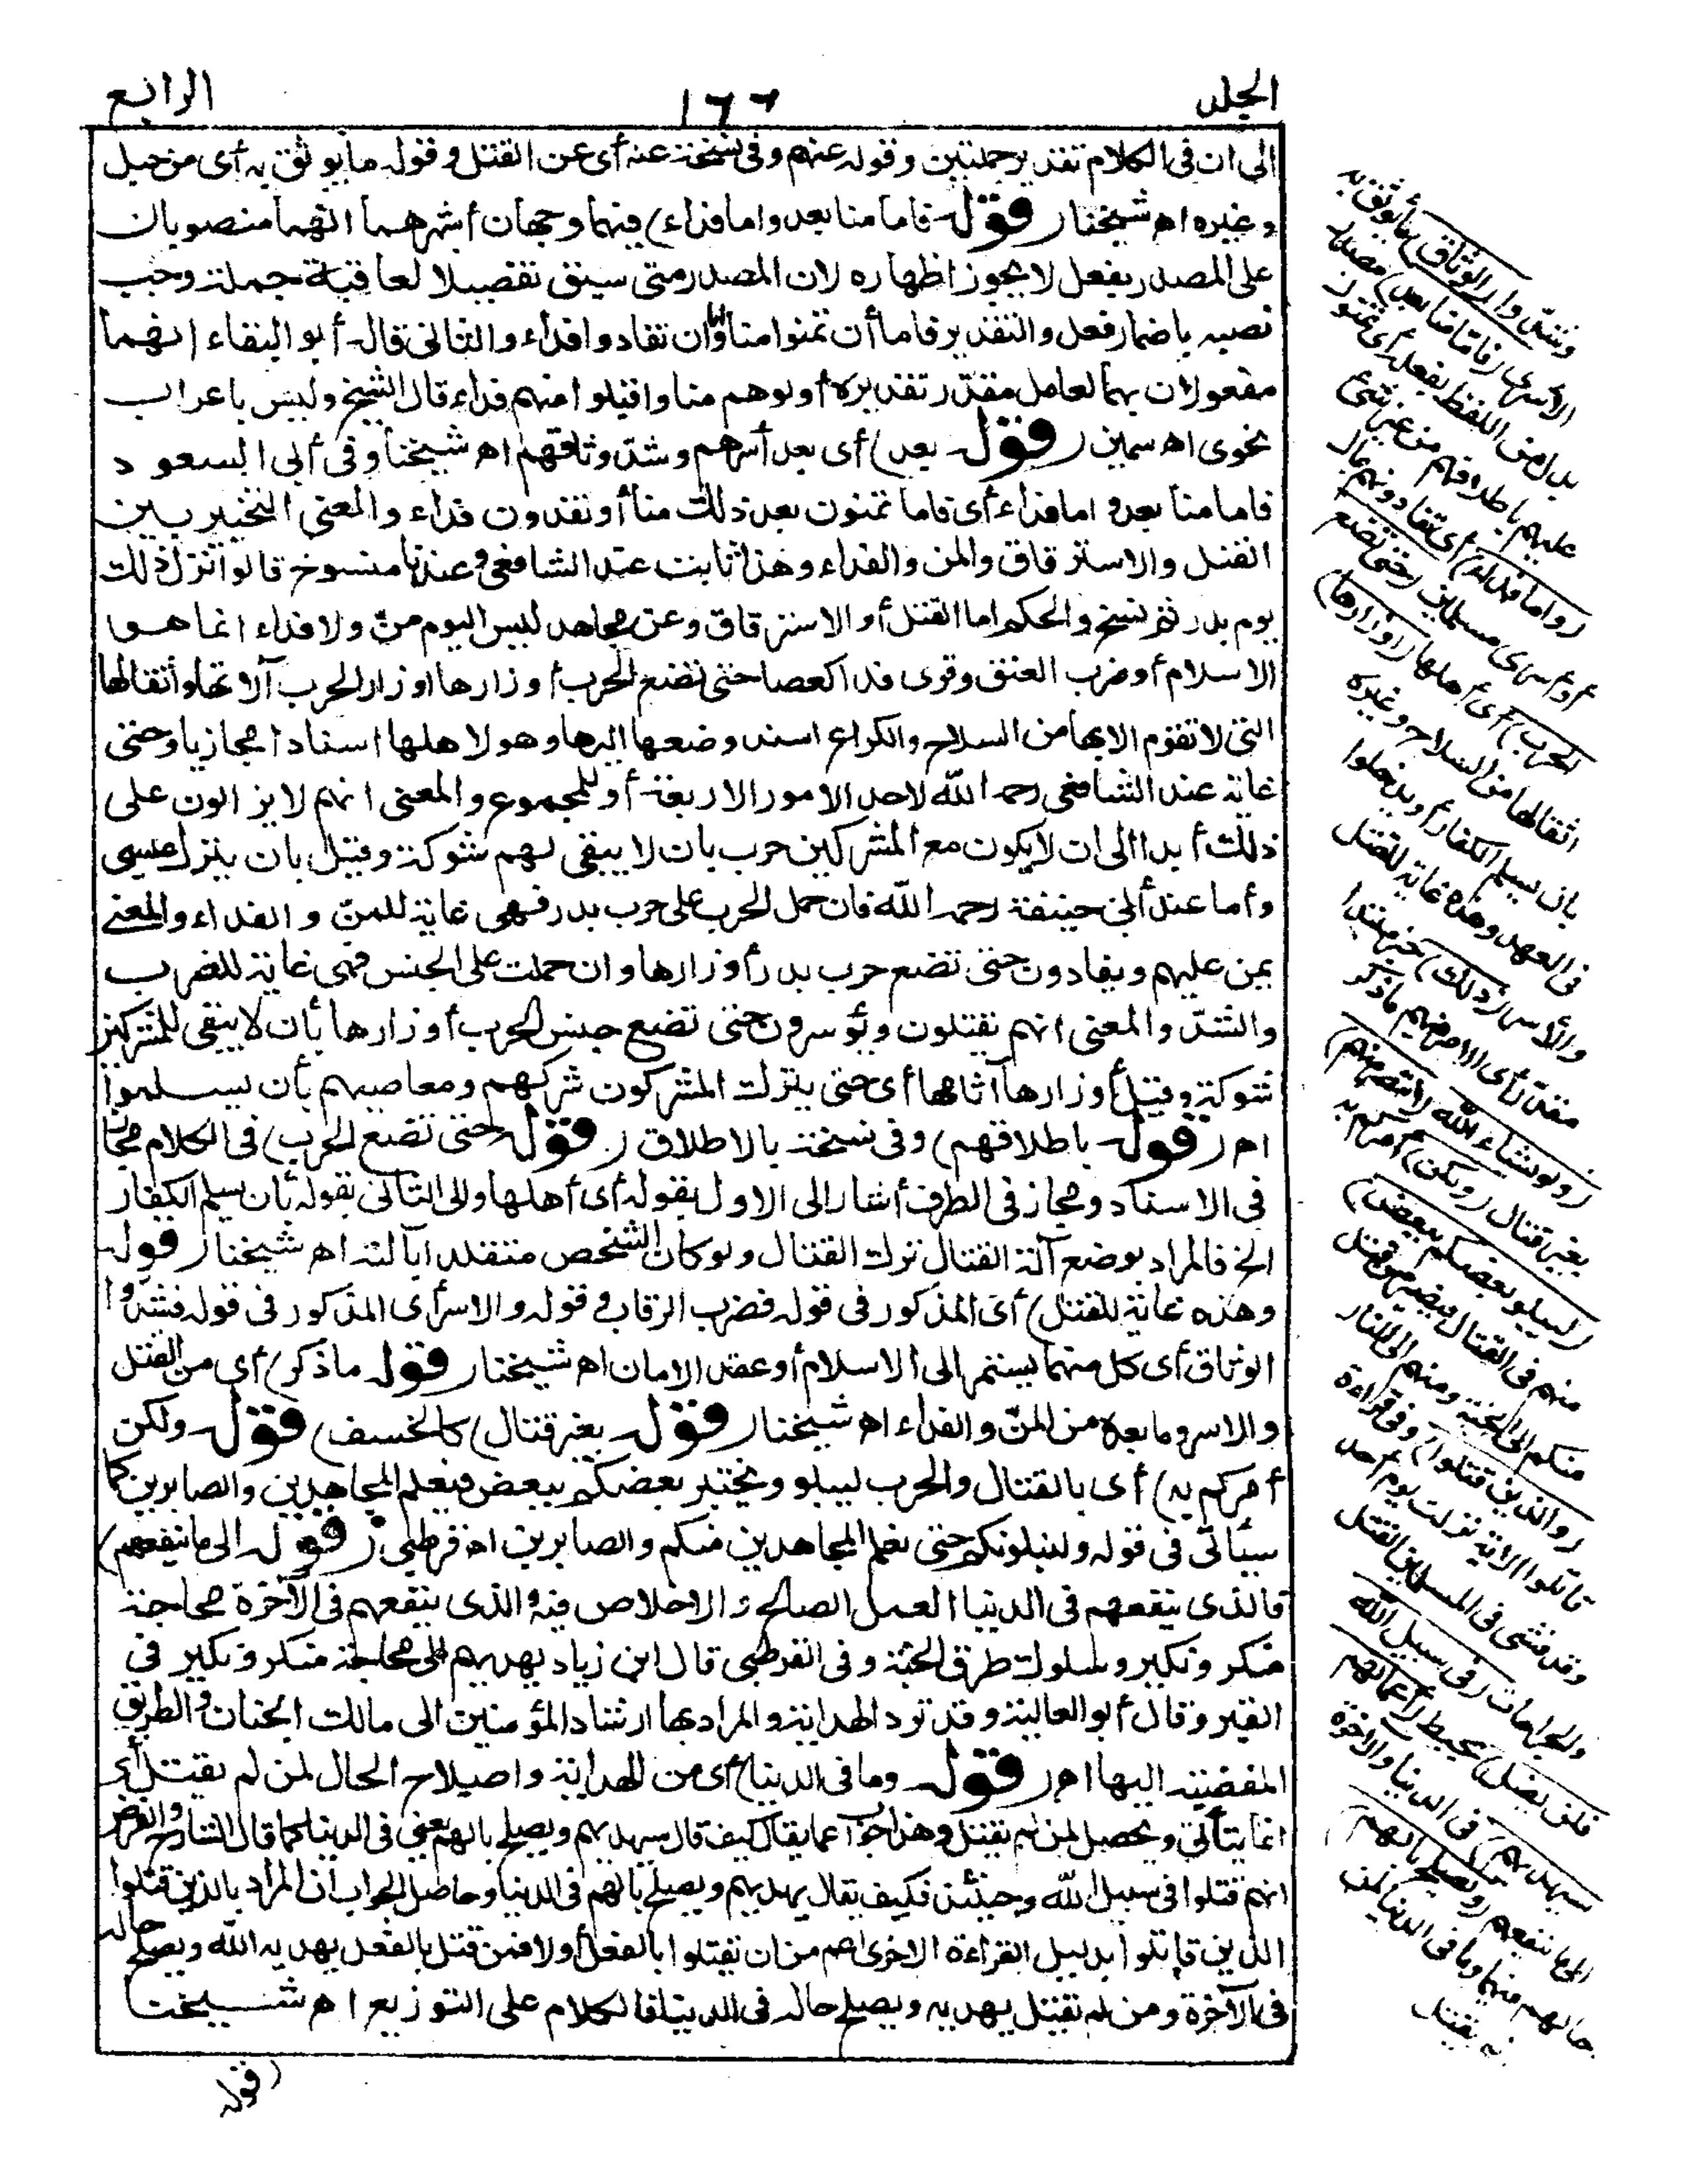 الجلد
١٦٦
الرابع
الى ان فى الكلام تقدير جملتين وقوله عنهم وفى نسخة عنه أى عن القتل وقوله ما يوثق به أى من حبل
وغيره اه شيخنا (قوله فاما منا بعد واما فداء) فيهما وجهان أشهرهما انهما منصوبان
على المصدر بفعل لا يجوز اظهاره لان المصدر متى سيق تفصيلا لعاقبة جملة وجب
نصبه باضمار فعل والتقدير فاما أن تمنوا منا واما ان تفادوا فداء والثانى قال أبو البقاء انهما
مفعولان بهما لعامل مقدر تقديره أولوهم منا واقبلوا منهم فداء قال الشيخ وليس باعراب
نحوى اه سمين (قوله بعد) أى بعد أسرهم وشد وثاقهم اه شيخنا وفى أبى السعود
فاما منا بعد واما فداء أى فاما تمنون بعد ذلك منا أو تفدون فداء والمعنى التخيير بين
القتل والاسترقاق والمن والفداء وهذا ثابت عند الشافعى وعندنا منسوخ قالوا نزل ذلك
يوم بدر ثم نسخ والحكم اما القتل أو الاسترقاق وعن مجاهد ليس اليوم منّ ولا فداء انما هو
الاسلام أو ضرب العنق وقرى فدا كعصا حتى تضع الحرب أوزارها اوزار الحرب آلاتها وأثقالها
التى لا تقوم الا بها من السلاح والكراع اسند وضعها اليها وهو لاهلها اسنادا مجازيا وحتى
غاية عند الشافعى رحمه الله لاحد الامور الاربعة أو للمجموع والمعنى انهم لا يزالون على
ذلك أبدا الى ان لا يكون مع المشركين حرب بان لا يبقى لهم شوكة وقيل بان ينزل عيسى
وأما عند أبى حنيفة رحمه الله فان حمل الحرب على حرب بدر فهى غاية للمنّ والفداء والمعنى
يمن عليهم ويفادون حتى تضع حرب بدر أوزارها وان حملت على الجنس فهى غاية للضرب
والشدّ والمعنى انهم يقتلون ويؤسرون حتى تضع جنس الحرب أوزارها بأن لا يبقى للمشركين
شوكة وقيل أوزارها آثامها أى حتى يترك المشركون شركهم ومعاصيهم بأن يسلموا
اه (قوله باطلاقهم) وفى نسخة بالاطلاق (قوله حتى تضع الحرب) فى الكلام مجاز
فى الاسناد ومجاز فى الطرف أشار الى الاول بقوله أى أهلها والى الثانى بقوله بأن يسلم الكفار
الخ فالمراد بوضع آلة القتال ترك القتال ولو كان الشخص متقلدا بآلته اه شيخنا (قوله
وهذه غاية للقتل) أى المذكور فى قوله فضرب الرقاب وقوله والاسر أى المذكور فى قوله فشدوا
الوثاق أى كل منهما يستمر الى الاسلام أو عقد الامان اه شيخنا (قوله ما ذكر) أى من القتل
والاسر وما بعده من المنّ والفداء اه شيخنا (قوله بغير قتال) كالخسف (قوله ولكن
أمركم به) أى بالقتال والحرب ليبلو ويختبر بعضكم ببعض فيعلم المجاهدين والصابرين كما
سيأتى فى قوله ولنبلونكم حتى نعلم المجاهدين منكم والصابرين اه قرطبى (قوله الى ما ينفعهم)
فالذى ينفعهم فى الدنيا العمل الصالح والاخلاص فيه والذى ينفعهم فى الآخرة محاجة
منكر ونكير وسلوك طرق الجنة وفى القرطبى قال ابن زياد يهديهم الى محاجة منكر ونكير فى
القبر وقال أبو العالية وقد ترد الهداية والمراد بها ارشاد المؤمنين الى مسالك الجنان والطريق
المفضية اليها اه (قوله وما فى الدنيا) أى من الهداية واصلاح الحال لمن لم يقتل أى
انما يتأتى ويحصل لمن لم يقتل وهذا جواب عما يقال كيف قال سيهديهم ويصلح بالهم يعنى فى الدنيا كما قال الشارح والفرض
انهم قتلوا فى سبيل الله وحينئذ فكيف يقال يهديهم ويصلح بالهم فى الدنيا وحاصل الجواب ان المراد بالذين قتلوا
الذين قاتلوا بدليل القراءة الاخرى اعم من ان يقتلوا بالفعل أو لا فمن قتل بالفعل يهديه الله ويصلح حاله
فى الآخرة ومن لم يقتل يهديه ويصلح حاله فى الدنيا فالكلام على التوزيع اه شيخنا
(قوله
وغيره (فامّا منّا بعد) مصدر
بدل من اللفظ بفعله أى تمنون
عليهم باطلاقهم من غير شئ
(واما فداء) أى تفادونهم بمال
أو أسرى مسلمين (حتى تضع
الحرب) أى أهلها (أوزارها)
اثقالها من السلاح وغيره
بان يسلم الكفار أو يدخلوا
فى العهد وهذه غاية للقتل
والأسر (ذلك) خبر مبتدا
مقدر أى الامر فيهم ما ذكر
(ولو يشاء الله لانتصر منهم)
بغير قتال (ولكن) أمركم به
(ليبلو بعضكم ببعض)
منهم فى القتال فيصير من قتل
منكم الى الجنة ومنهم الى النار
(والذين قتلوا) وفى قراءة
قاتلوا الآية نزلت يوم أحد
وقد فشى فى المسلمين القتل
والجراحات (فى سبيل الله
فلن يضل) يحبط (أعمالهم
سيهديهم) فى الدنيا والآخرة
الى ما ينفعهم (ويصلح بالهم)
حالهم فيهما وما فى الدنيا لمن
لم يقتل